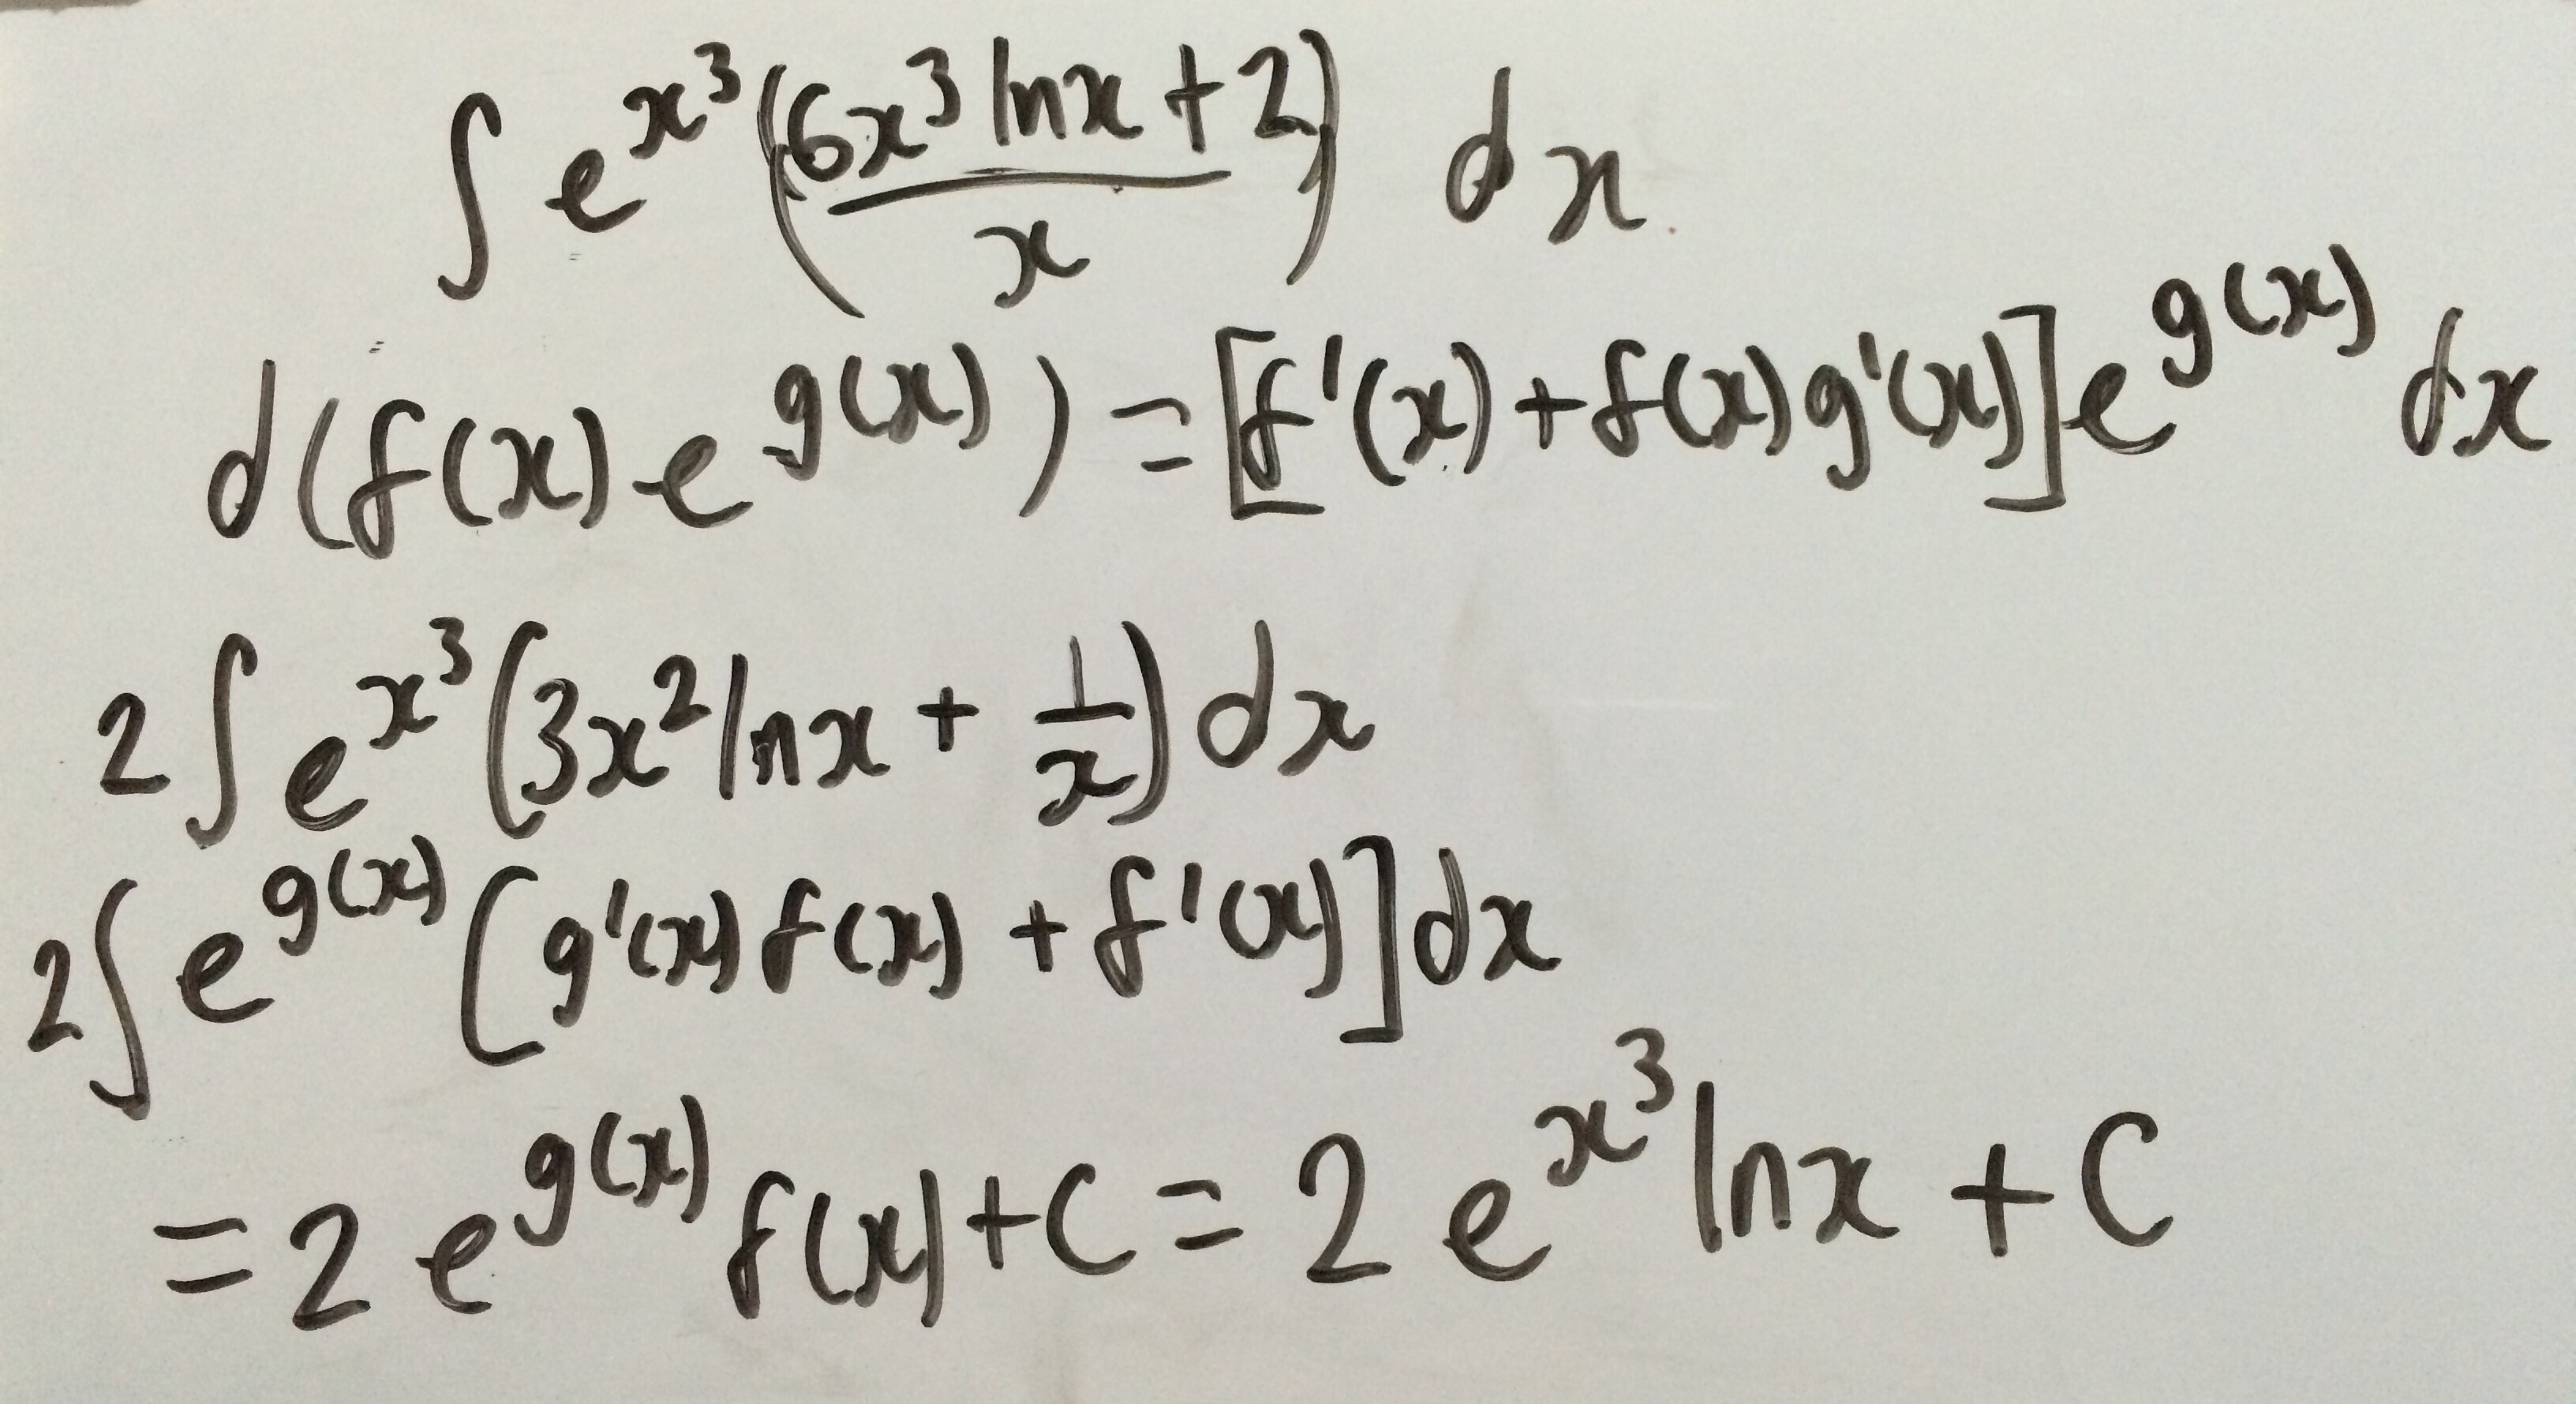 ∫ e^{x^3} ((6x^3 lnx + 2)/x) dx
d(f(x) e^{g(x)}) = [f'(x) + f(x) g'(x)] e^{g(x)} dx
2∫ e^{x^3} (3x^2 lnx + 1/x) dx
2∫ e^{g(x)} [g'(x) f(x) + f'(x)] dx
= 2 e^{g(x)} f(x) + C = 2 e^{x^3} lnx + C